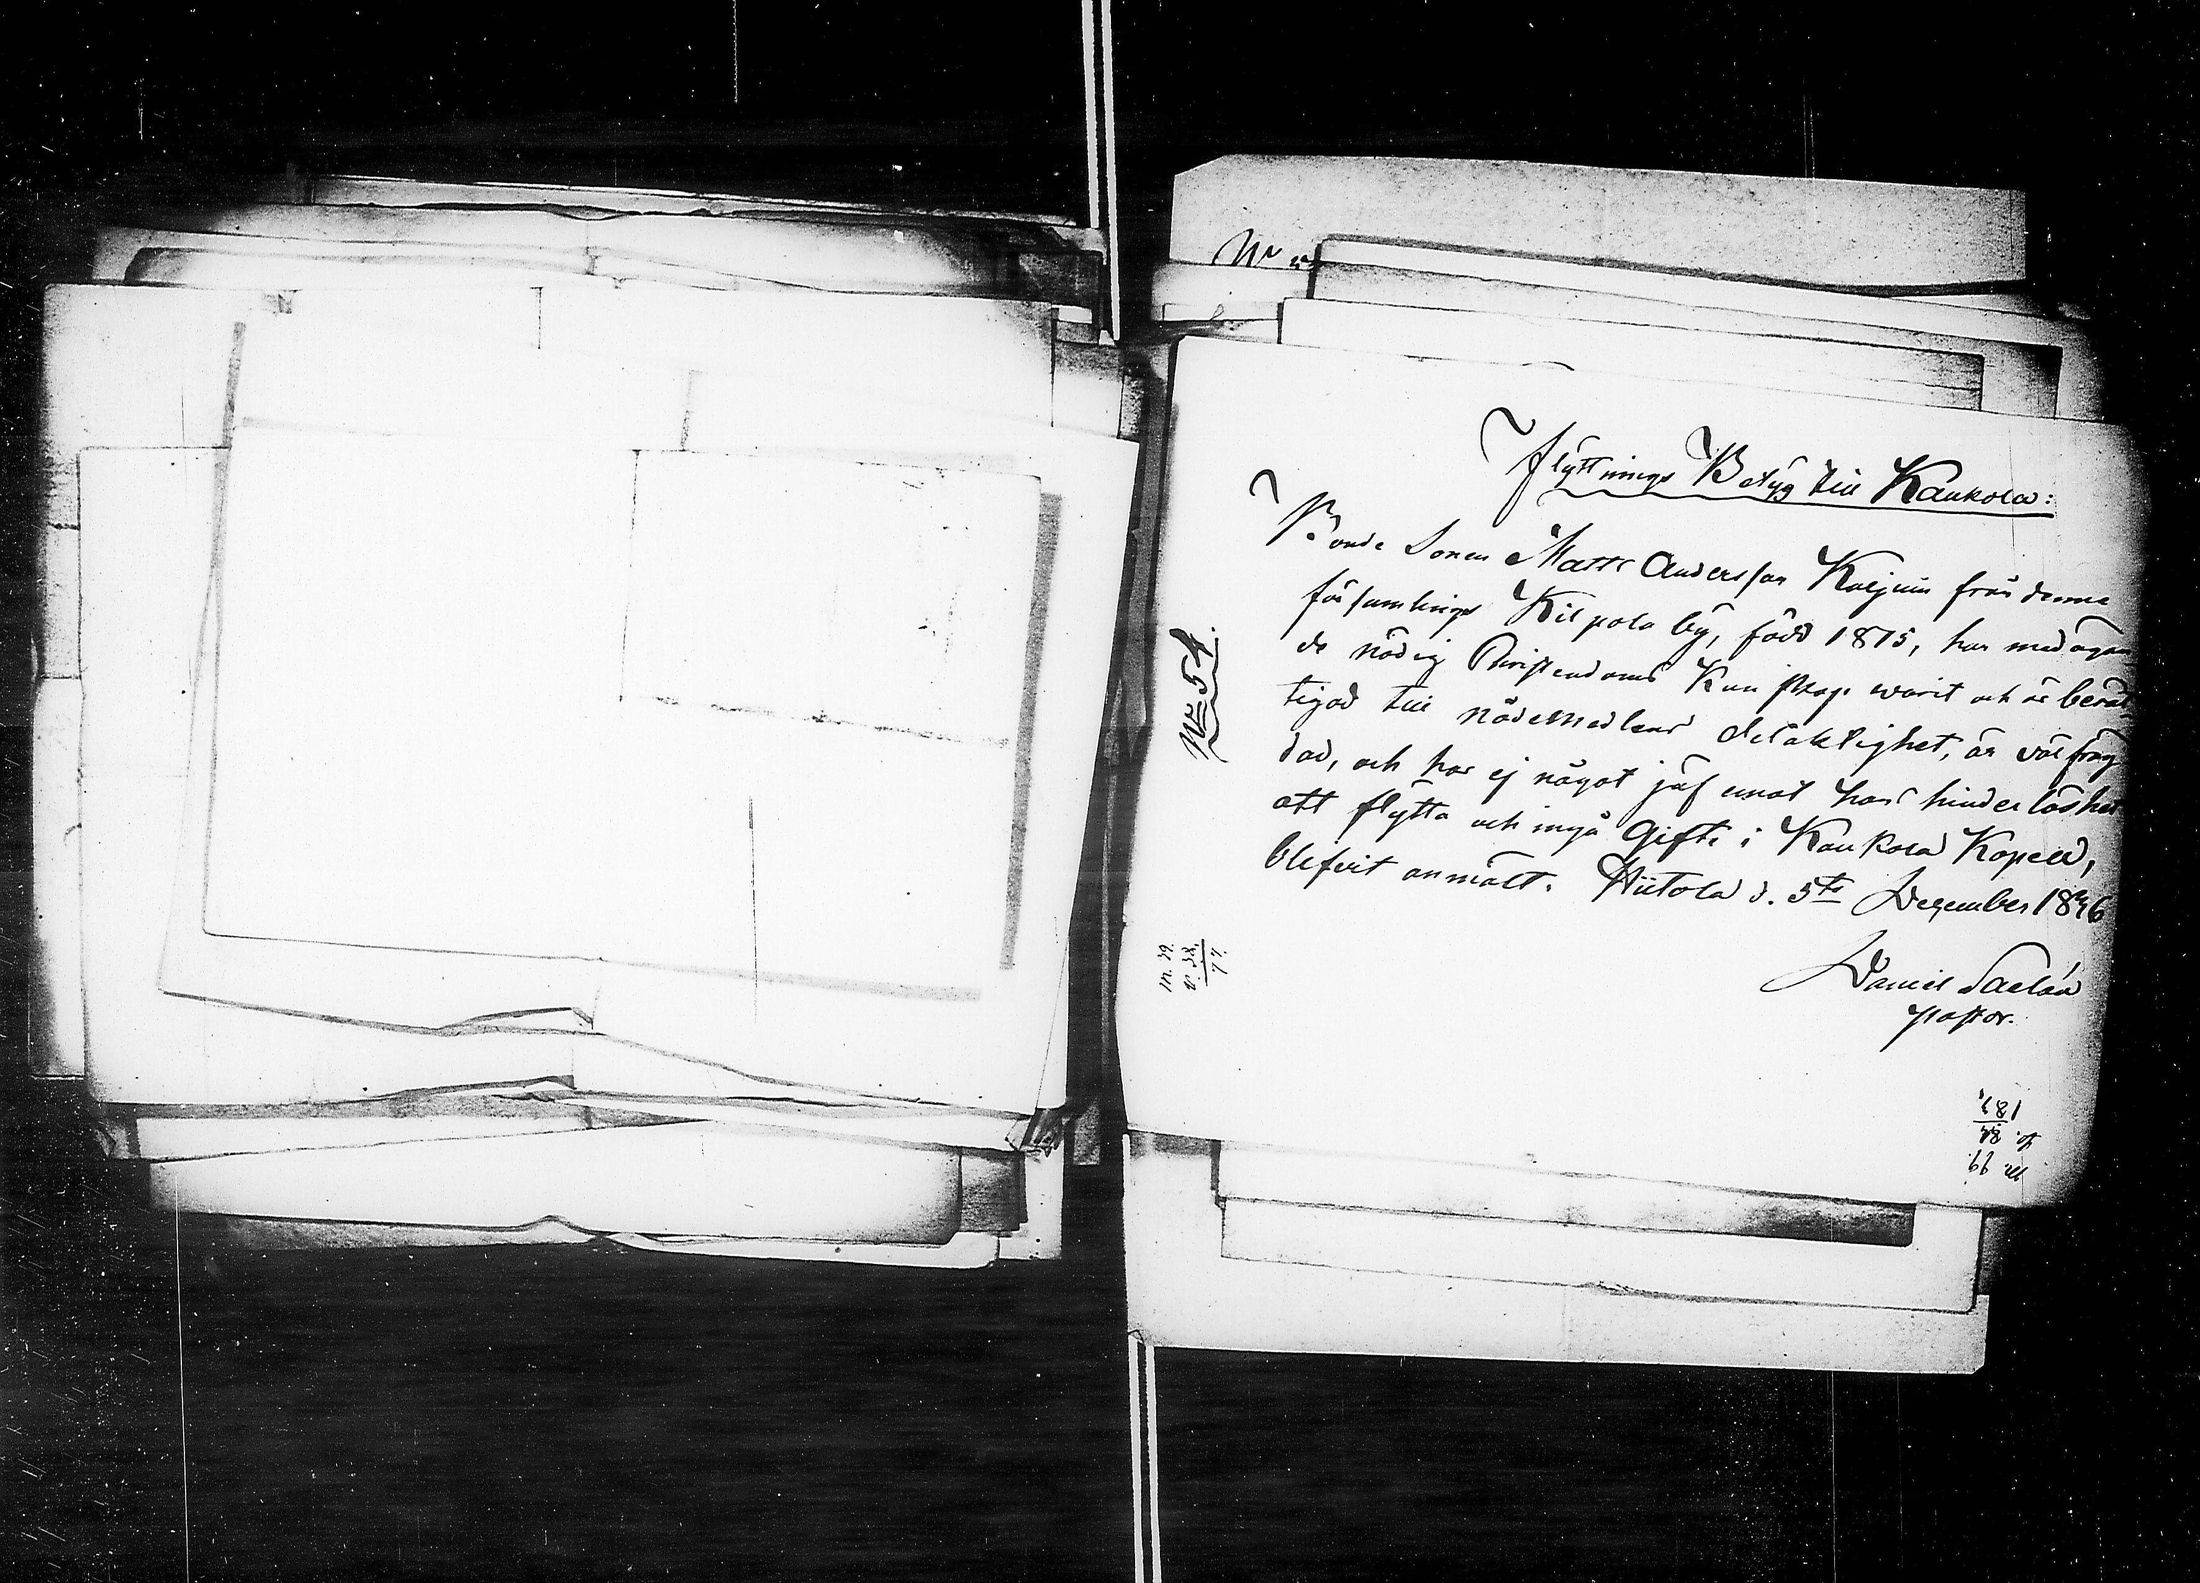 Flyttnings Betyg till Kaukola:
Bonde Sonen Matts Andersson från denna
församlings Kilpola by, född 1815, har med ägan
de nödig Christendoms Kunskap warit och är berät
tigad till nådemedlens delaktighet, är väl fräg
dad, och har ej något jäf emot hans hinderlöshet
att flytta och ingå Gifte i Kaukola Kapell,
blifvit anmält. Hiitola d. 5te December 1846
Daniel
pastor.
No 54.
m. 39.
v. 38.
77.